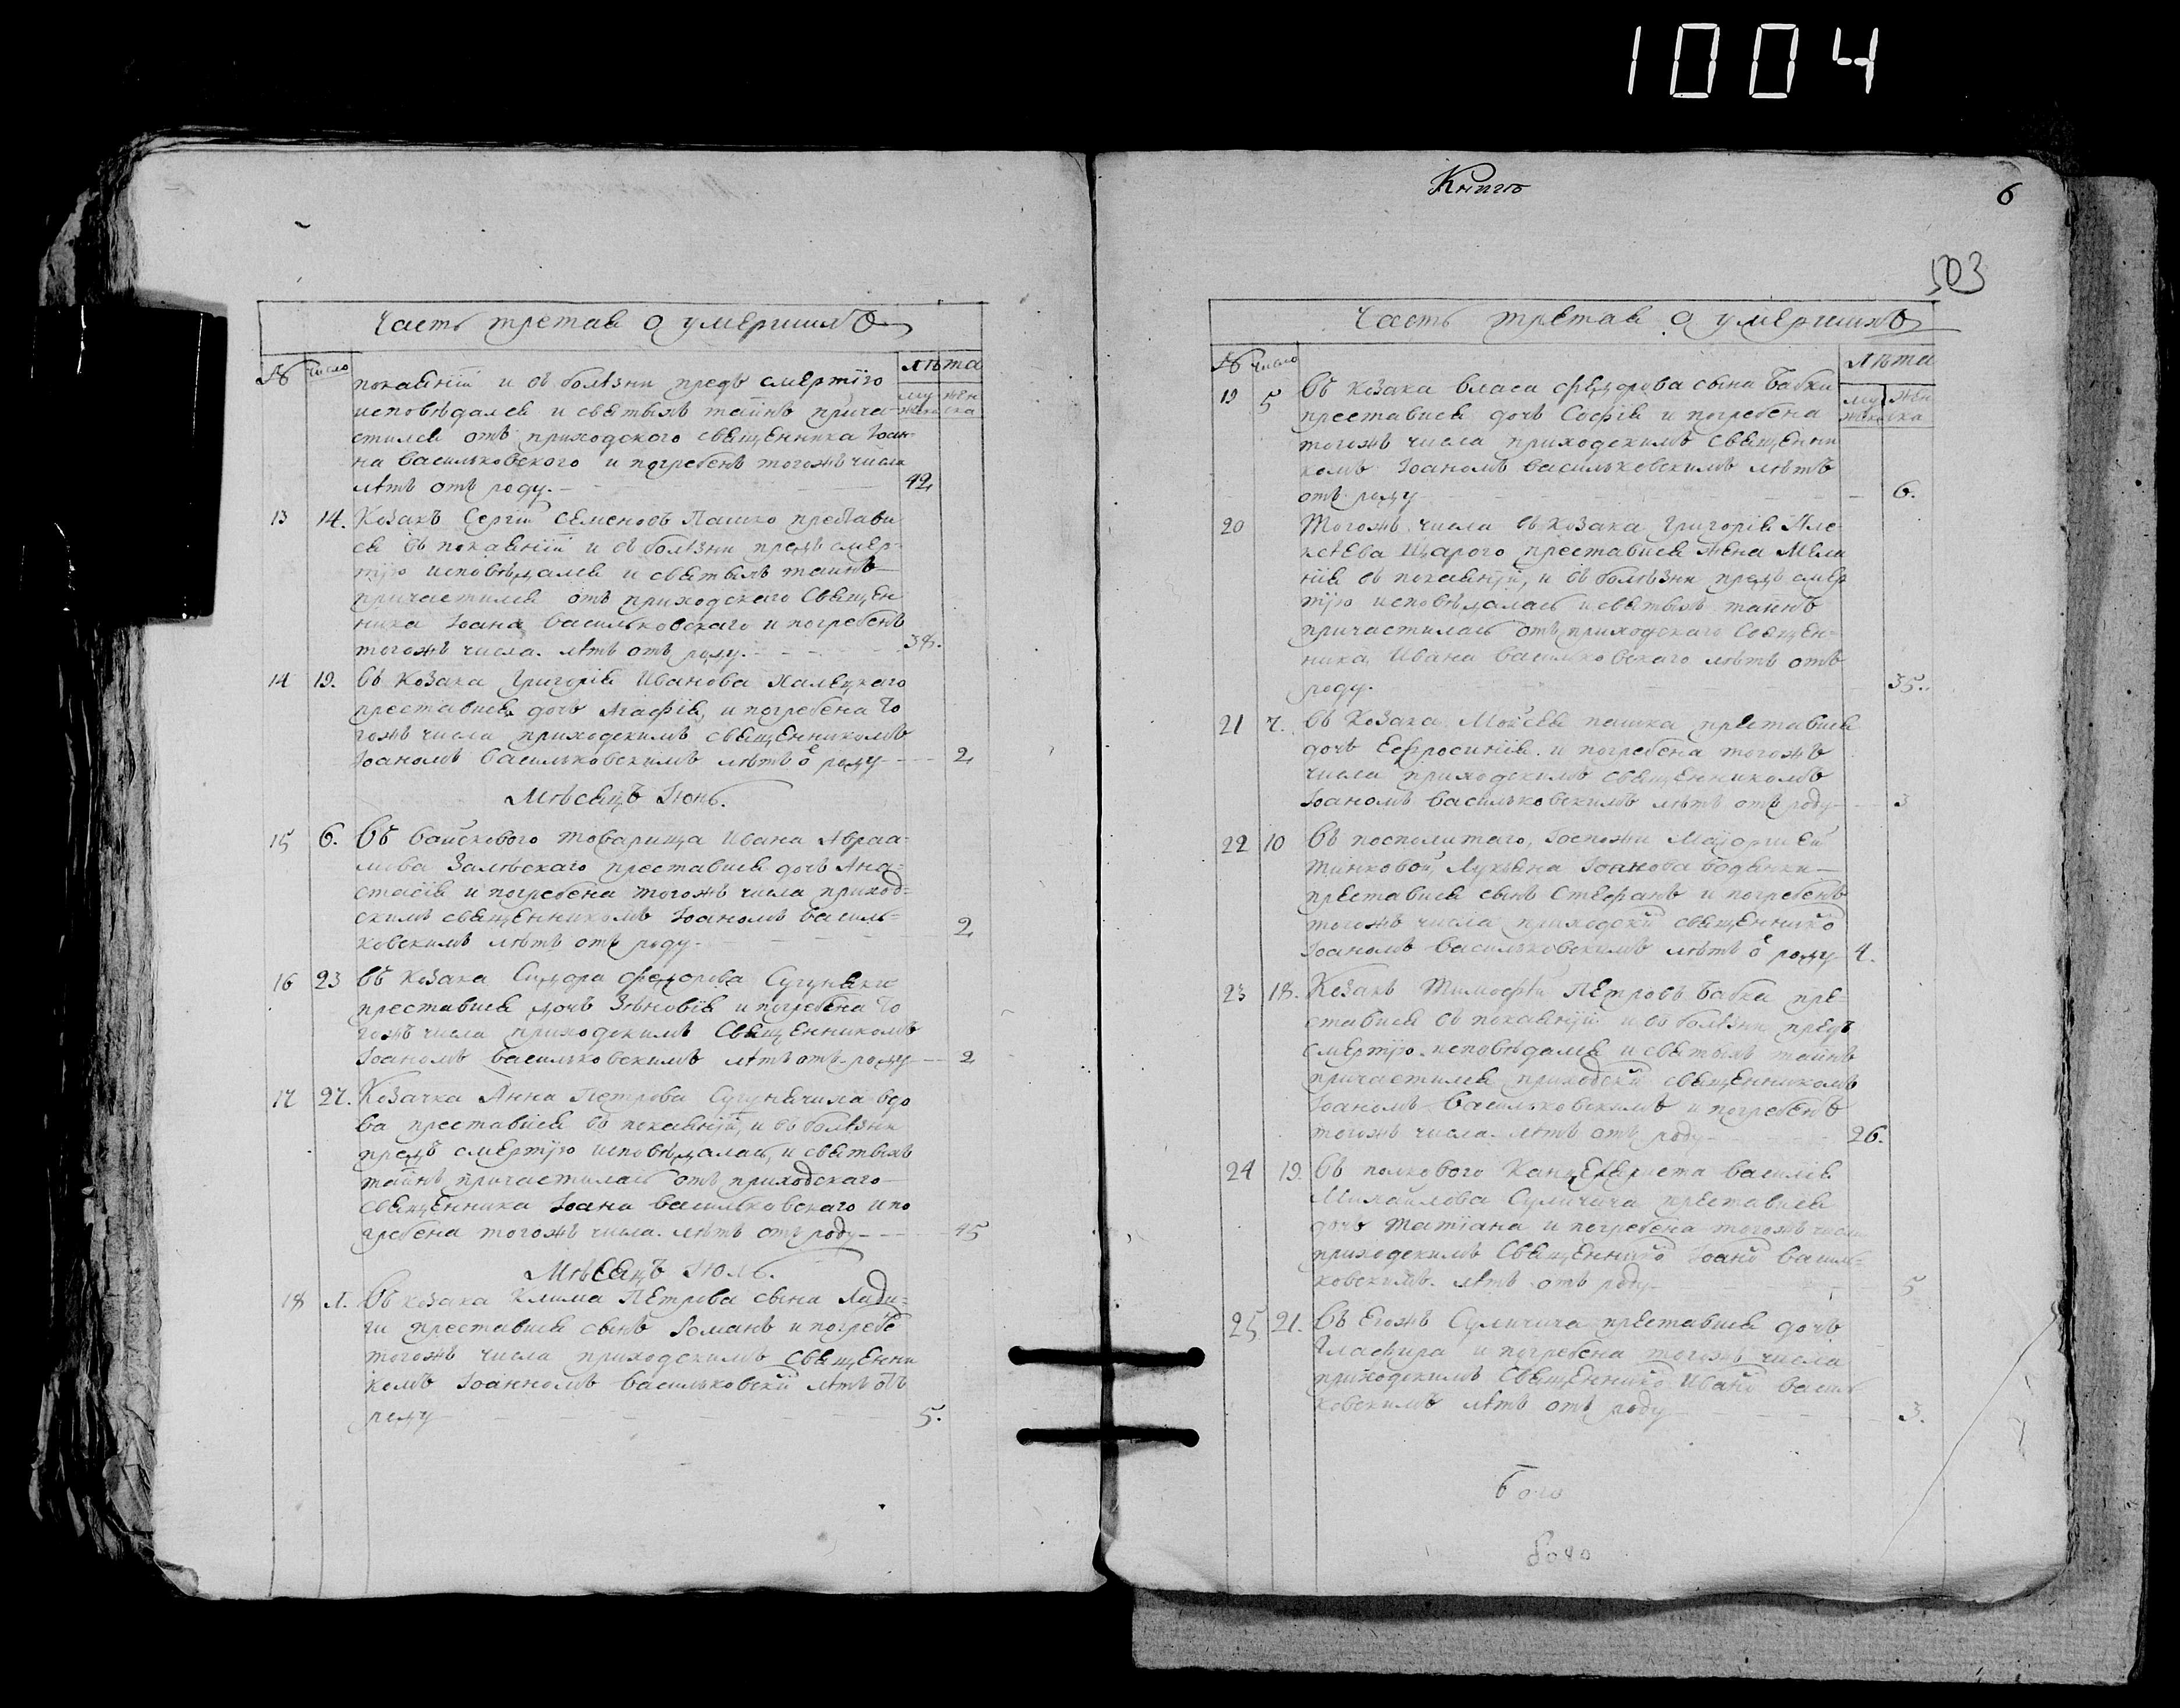 1004
Книга
6
503
Часть третая о умершихъ
№ число лѣта
мужеска женска
покаянїи и въ болѣзни предъ смертїю
исповѣдался и святыхъ тайнъ прича-
стился отъ приходского священника Іоан-
на Васильковского и погребенъ тогожъ числа
лѣтъ отъ роду. 42
13 14. Козакъ Сергій Семеновъ Пашко престави
ся въ покаянїи и въ болѣзни предъ смер-
тїю исповѣдался и святыхъ таинъ
причастился отъ приходскаго Священ
ника Іоана Васильковскаго и погребенъ
тогожъ числа. лѣтъ отъ роду. 38.
14 19. Въ козака Григорія Иванова Халецкаго
преставися дочъ Агафія, и погребена то
гожъ числа приходскимъ священникомъ
Іоаномъ Васильковскимъ лѣтъ о роду 2
Мѣсяцъ Іюнь.
15 6. Въ войскового товарища Ивана Авраа-
мова Залѣскаго преставися дочъ Ана-
стасія и погребена тогожъ числа приход-
скимъ священникомъ Іоаномъ Василь-
ковскимъ лѣтъ отъ роду 2
16 23 Въ козака Сидора Федорова Сугуняки
преставися дочъ Зѣновія и погребена то
гожъ числа приходскимъ Священникомъ
Іоаномъ Васильковскимъ лѣтъ отъ роду 2
17 27. Козачка Анна Петрова Сугунячиха вдо
ва преставися въ покаянїи, и въ болѣзни
предъ смертїю исповѣдалась, и святыхъ
тайнъ причастилась отъ приходскаго
священника Іоана Васильковскаго и по
гребена тогожъ числа. лѣтъ отъ роду 45
Мѣсяцъ Іюль.
18 1. Въ козака Клима Петрова сына Лади-
ги преставися сынъ Романъ и погребе
тогожъ числа приходскимъ священни
комъ Іоанномъ Васильковски лѣтъ отъ
роду 5.
Часть третая о умершихъ
№ число лѣта
мужеска женска
19 5 Въ козака Власа Федорова сына Бабки
преставися дочъ Софія и погребена
тогожъ числа приходскимъ священни
комъ Іоаномъ Васильковскимъ лѣтъ
отъ роду 6.
20 Тогожъ числа въ козака Григорія Але-
ксѣева Щарого преставися жена Мела
нія въ покаянїи, и въ болѣзни предъ смер
тїю исповѣдалась и святыхъ таинъ
причастилась отъ приходскаго Священ-
ника Ивана Васильковскаго лѣтъ отъ
роду. 35.
21 7. Въ Козака Мойсея пашка преставися
дочъ Ефросинія и погребена тогожъ
числа приходскимъ священникомъ
Іоаномъ Васильковскимъ лѣтъ отъ роду 3
22 10 Въ посполитаго, Госпожи Маіорши
Лукяна Іоанова
преставися сынъ Стефанъ и погребенъ
тогожъ числа приходски священнико
Іоаномъ Васильковскимъ лѣтъ о роду 4.
23 18. Козакъ Тимофѣй Петровъ Бабка пре-
ставися въ покаянїи и въ болѣзни предъ
смертїю исповѣдался и святыхъ тайнъ
причастился приходски священникомъ
Іоаномъ Васильковскимъ и погребенъ
тогожъ числа. лѣтъ отъ роду 26.
24 19. Въ полкового Канцеляриста Василія
Михаилова Суличича преставися
дочъ Татїана и погребена тогожъ числа
приходскимъ Священнико Іоано Василь-
ковскимъ. лѣтъ отъ роду 5
25 21. Въ егожъ Суличича преставися дочъ
Глафира и погребена тогожъ числа
приходскимъ Священнико Ивано Василь
ковскимъ лѣтъ отъ роду 3.